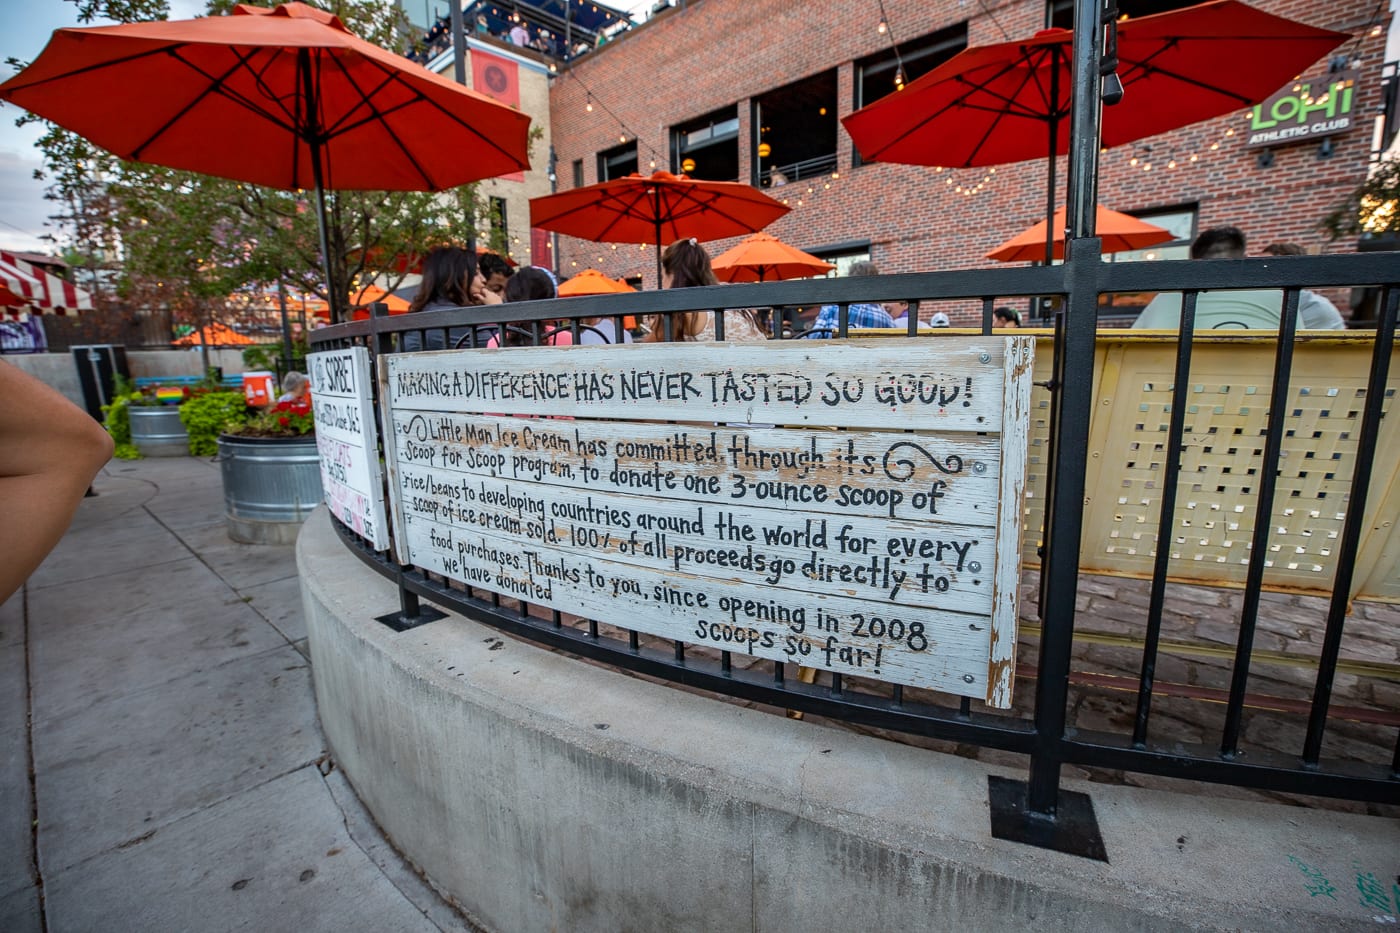 LOHI
ATHLETIC CLUB
SORBET
MAKING A DIFFERENCE HAS NEVER TASTED SO GOOD!
Little Man Ice Cream has committed, through its
Scoop for Scoop program, to donate one 3-ounce scoop of
rice/beans to developing countries around the world for every
scoop of ice cream sold. 100% of all proceeds go directly to
food purchases. Thanks to you, since opening in 2008
we have donated scoops so far!